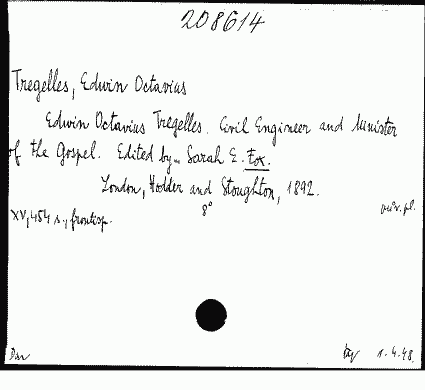 208614
Tregelles, Edwin Octavius
Edwin Octavius Tregelles. Civil Engineer and Minister
of the Gospel. Edited by.. Sarah E. Fox.
London, Hodder and Stoughton, 1892.
8°
XV, 454 s., frontisp.
Dar
1.4.48.